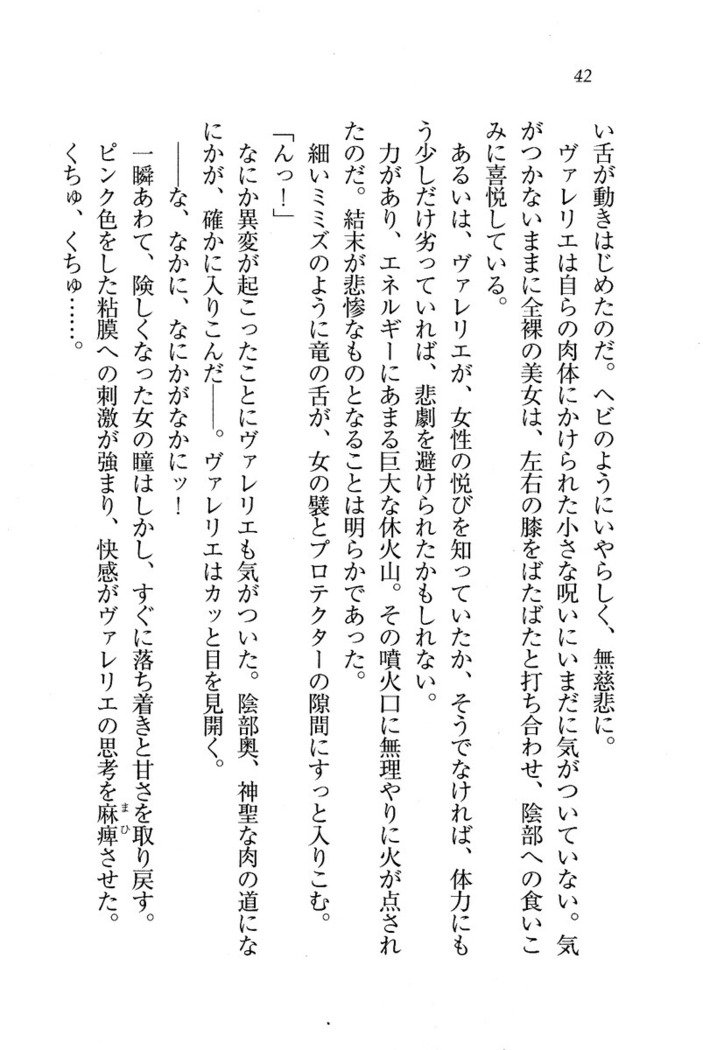 42
い舌が動きはじめたのだ。ヘビのようにいやらしく、無慈悲に。
ヴァレリエは自らの肉体にかけられた小さな呪いにいまだに気がついていない。気
がつかないままに全裸の美女は、左右の膝をばたばたと打ち合わせ、陰部への食いこ
みに喜悦している。
あるいは、ヴァレリエが、女性の悦びを知っていたか、そうでなければ、体力にも
う少しだけ劣っていれば、悲劇を避けられたかもしれない。
力があり、エネルギーにあまる巨大な休火山。その噴火口に無理やりに火が点され
たのだ。結末が悲惨なものとなることは明らかであった。
細いミミズのように竜の舌が、女の襞とプロテクターの隙間にすっと入りこむ。
「んっ！」
なにか異変が起こったことにヴァレリエも気がついた。陰部奥、神聖な肉の道にな
にかが、確かに入りこんだ――。ヴァレリエはカッと目を見開く。
――な、なかに、なにかがなかにッ！
一瞬あわて、険しくなった女の瞳はしかし、すぐに落ち着きと甘さを取り戻す。
ピンク色をした粘膜への刺激が強まり、快感がヴァレリエの思考を麻痺させた。
まひ
くちゅ、くちゅ……。